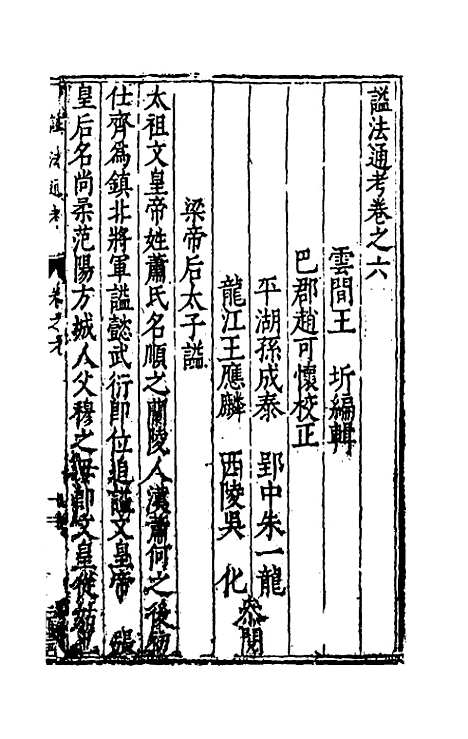 諡法通考卷之六
雲間王 圻編輯
巴郡趙可懷校正
平湖孫成泰 郢中朱一龍
龍江王應麟 西陵吳 化
叅閱
梁帝后太子諡
太祖文皇帝姓蕭氏名順之蘭陵人漢蕭何之後初
仕齊為鎮北將軍諡懿武衍即位追諡文皇帝 張
皇后名尚柔范陽方城人父穆之母即文皇從姑
諡法通考 卷之六